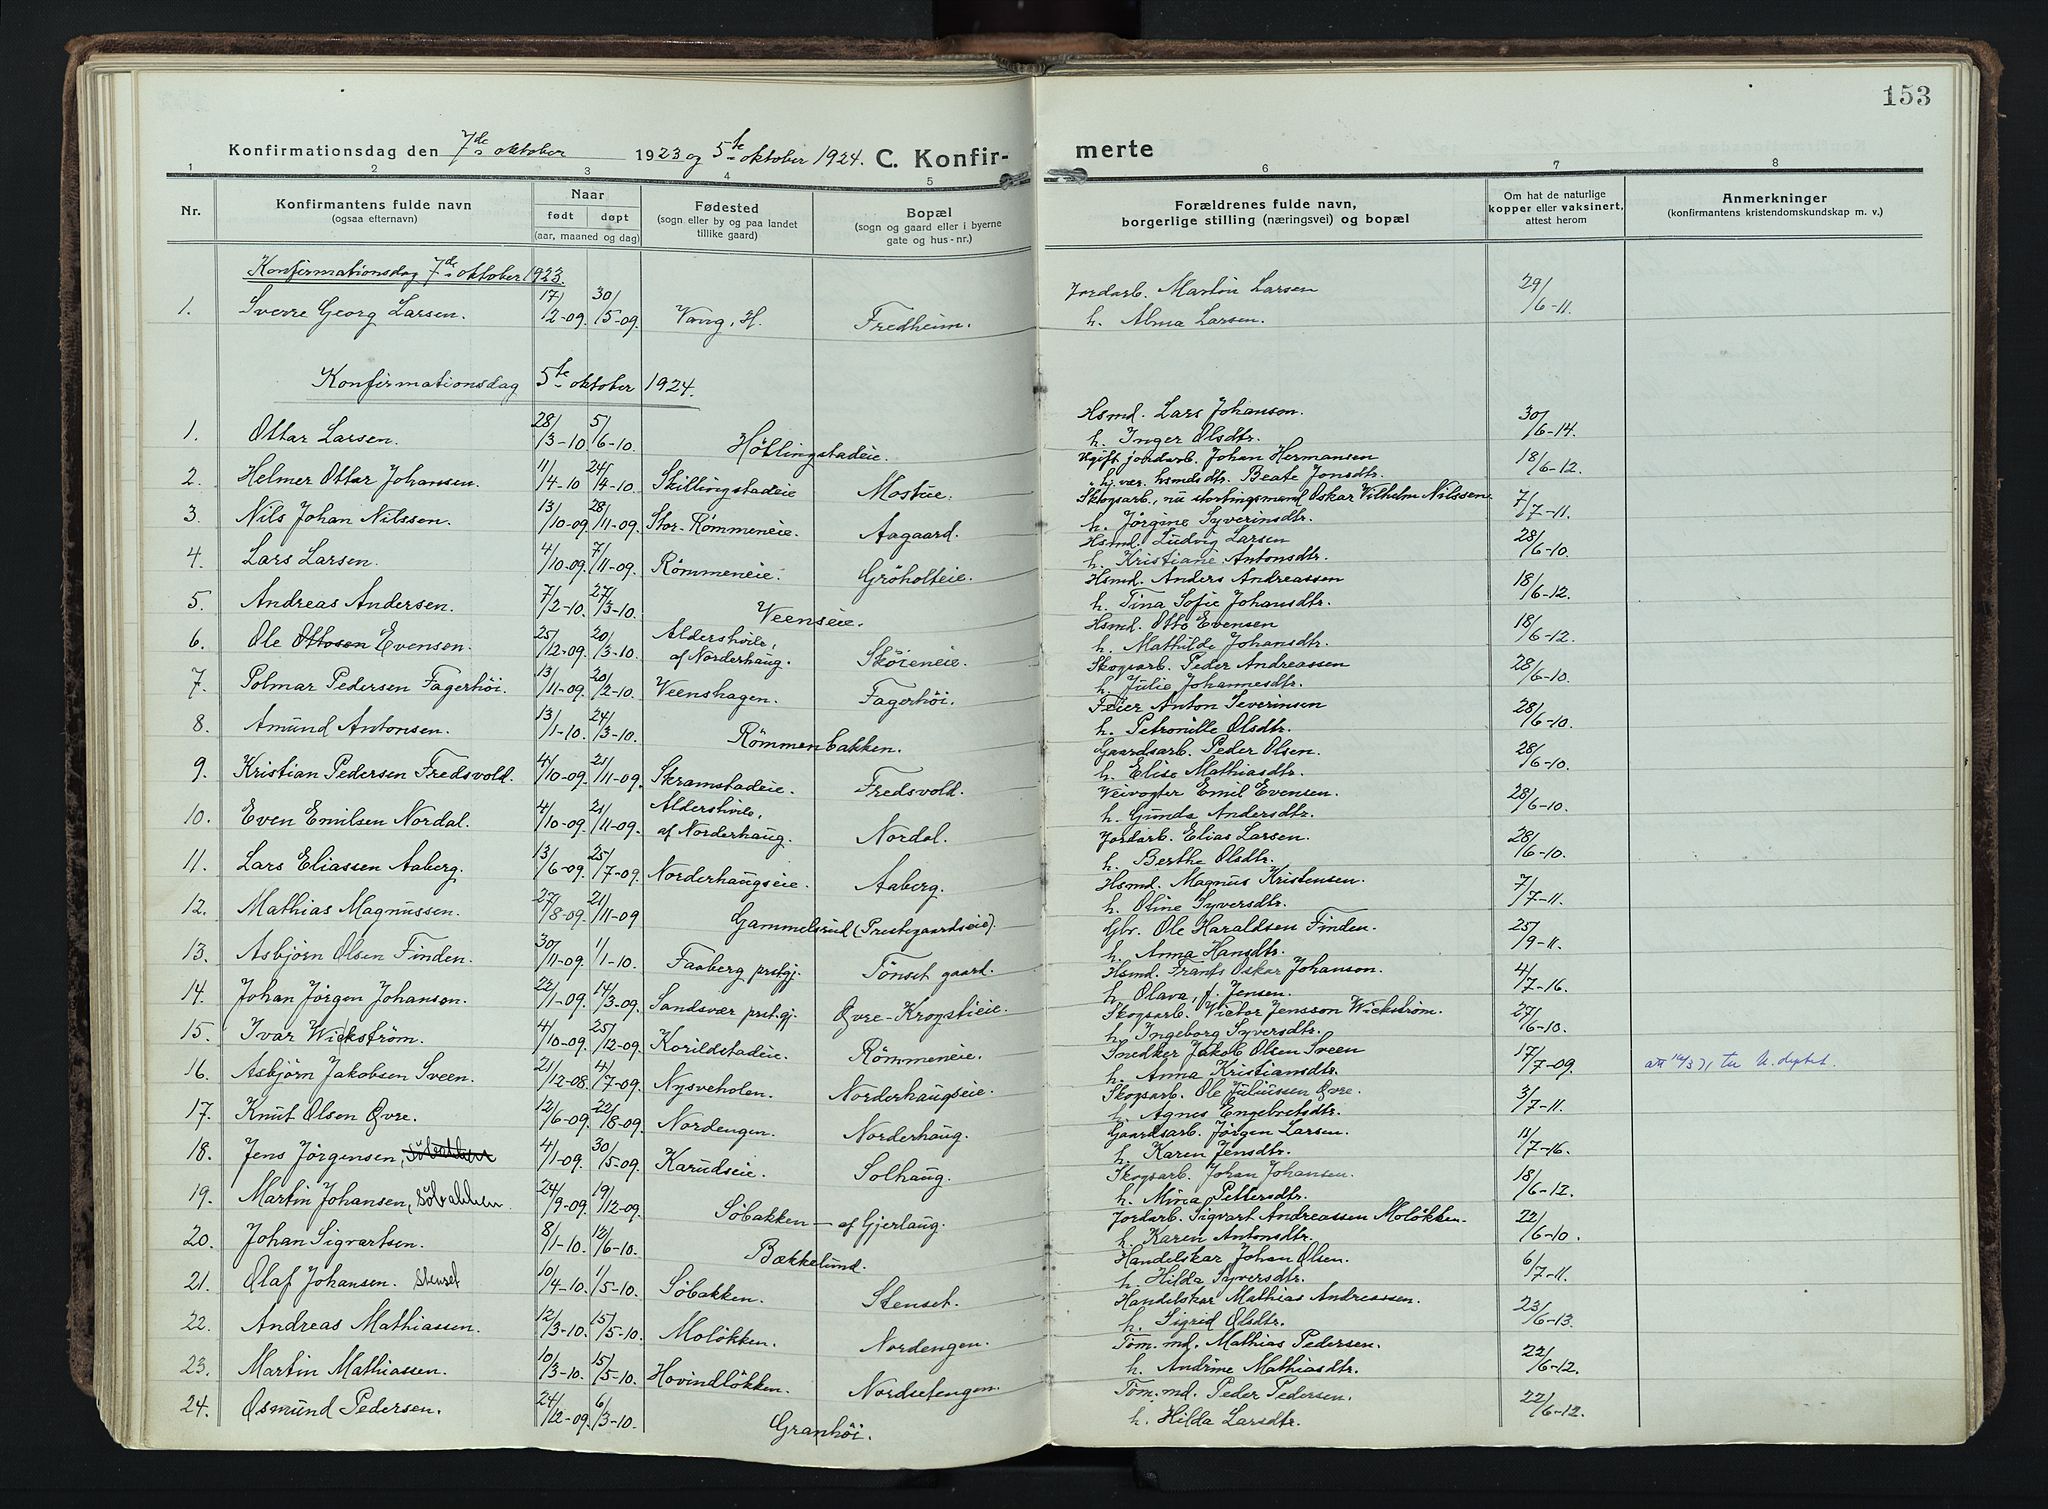 153
Konfirmationsdag den 7de oktober 1923 og 5te oktober 1924. C. Konfir-
merte
1 2 3 4 5 6 7 8
Nr. Konfirmantens fulde navn (ogsaa efternavn) Naar født døpt (aar, maaned og dag) Fødested (sogn eller by og paa landet tillike gaard) Bopæl (sogn og gaard eller i byerne gate og hus-nr.) Forældrenes fulde navn, borgerlige stilling (næringsvei) og bopæl Om hat de naturlige kopper eller vaksinert, attest herom Anmerkninger (konfirmantens kristendomskundskap m. v.)
Konfirmationsdag 7de oktober 1923.
1. Sverre Georg Larsen. 17/12-09. 30/5-09. Vang, H. Fredheim. Jordarb. Martin Larsen h. Alma Larsen. 29/6-11.
Konfirmationsdag 5te oktober 1924.
1. Ottar Larsen. 28/3-10 5/6-10. Høtlingstadeie. Hsmd. Lars Johanson. h. Inger Olsdtr. 30/6-14.
2. Helmer Ottar Johansen. 11/4-10 24/4-10. Skillingstadeie Mostue. Ugift jordarb. Johan Hermansen Beate Jonsdtr. 18/6-12.
3. Nils Johan Nilssen. 13/10-09. 28/11-09. Stor-Rømmeneie. Aagaard. Skogsarb., nu stortingsmand Oskar Wilhelm Nilssen. h. Jørgine Syverinsdtr. 7/7-11.
4. Lars Larsen. 4/10-09. 7/11-09. Rømmeneie. Grøholteie. Hsmd. Ludvig Larsen h. Kristiane Antonsdtr. 28/6-10.
5. Andreas Andersen. 7/2-10. 27/3-10. Veenseie. Hsmd. Anders Andreassen h. Tina Sofie Johansdtr. 18/6-12.
6. Ole Ottosen Evensen. 25/12-09. 20/3-10. Aldershvile, af Norderhaug. Skøieneie. Hsmd. Otto Evensen h. Mathilde Johansdtr. 18/6-12.
7. Polmar Pedersen Fagerhøi. 13/11-09. 20/2-10. Veenshagen. Fagerhøi. Skogsarb. Peder Andreassen h. Julie Johannesdtr. 28/6-10.
8. Amund Antonsen. 13/1-10. 24/3-10. Rømmenbakken. Feier Anton Severinsen h. Petronille Olsdtr. 28/6-10.
9. Kristian Pedersen Fredsvold. 4/10-09. 21/11-09. Skramstadeie. Fredsvold. Gaardsarb. Peder Olsen. h. Elise Mathiasdtr. 28/6-10.
10. Even Emilsen Nordal. 4/10-09. 21/11-09. Aldershvile, af Norderhaug. Nordal. Veivogter Emil Evensen. h. Gunda Andersdtr. 28/6-10.
11. Lars Eliassen Aaberg. 13/6-09. 25/7-09. Norderhaugseie. Aaberg. Jordarb. Elias Larsen. h. Berthe Olsdtr. 28/6-10.
12. Mathias Magnussen. 27/8-09. 21/11-09 Gammelsrud (Prestegaardseie). Hsmd. Magnus Kristensen. h. Oline Syversdtr. 7/7-11.
13. Asbjørn Olsen Finden. 30/11-09. 1/1-10. Faaberg prstgj. Tønset gaard. Gbr. Ole Haraldsen Finden. h. Anna Hansdtr. 25/9-11.
14. Johan Jørgen Johansen. 22/1-09. 14/3-09. Sandsvær prst.gj. Øvre-Krogstieie. Hsmd. Frants Oskar Johanson. h. Olava, f. Jensen. 4/7-16.
15. Ivar Wickstrøm. 4/10-09. 25/12-09. Korildstadeie. Rømmeneie. Skogsarb. Victor Jensson Wickstrøm. h. Ingeborg Syversdtr. 27/6-10.
16. Asbjørn Jakobsen Sveen. 21/12-08. 4/7-09. Nysveholen. Norderhaugseie. Snedker Jakob Olsen Sveen h. Anna Kristiansdtr. 17/7-09. att 16/3 71
17. Knut Olsen Øvre. 12/6-09. 22/8-09. Nordengen. Norderhaug. Skogsarb. Ole Juliussen Øvre. h. Agnes Engebretsdtr. 3/7-11.
18. Jens Jørgensen, Søbakken 4/1-09. 30/5-09. Karudseie. Solhaug. Gaardsarb. Jørgen Larsen. h. Karen Jensdtr. 11/7-16.
19. Martin Johansen, Søbakken. 24/9-09. 19/12-09. Søbakken - af Gjerlaug. Skogsarb. Johan Johansen. h. Mina Pettersdtr. 18/6-12.
20. Johan Sigvartsen. 8/1-10. 12/6-10. Bækkelund. Jordarb. Sigvart Andreassen Moløkken. h. Karen Antonsdtr. 22/6-10.
21. Olaf Johansen. Stenset 10/4-10. 1/5-10. Søbakken. Stenset. Handelskar Johan Olsen. h. Hilda Syversdtr. 6/7-11.
22. Andreas Mathiassen. 12/3-10. 15/5-10. Moløkken. Nordengen. Handelskar Mathias Andreassen. h. Sigrid Olsdtr. 23/6-13.
23. Martin Mathiassen. 10/3-10. 15/5-10. Hovindløkken. Nordsetengen. Tøm.md. Mathias Pedersen. h. Andrine Mathiasdtr. 22/6-12.
24. Osmund Pedersen. 24/12-09. 6/3-10. Granhøi. Tøm.md. Peder Pedersen. h. Hilda Larsdtr. 22/6-12.